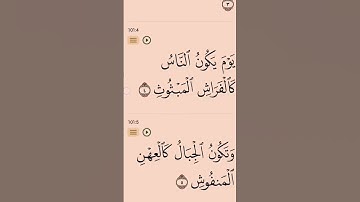 ٣
101:4
يَوْمَ يَكُونُ ٱلنَّاسُ
كَٱلْفَرَاشِ ٱلْمَبْثُوثِ ٤
101:5
وَتَكُونُ ٱلْجِبَالُ كَٱلْعِهْنِ
ٱلْمَنفُوشِ ٥